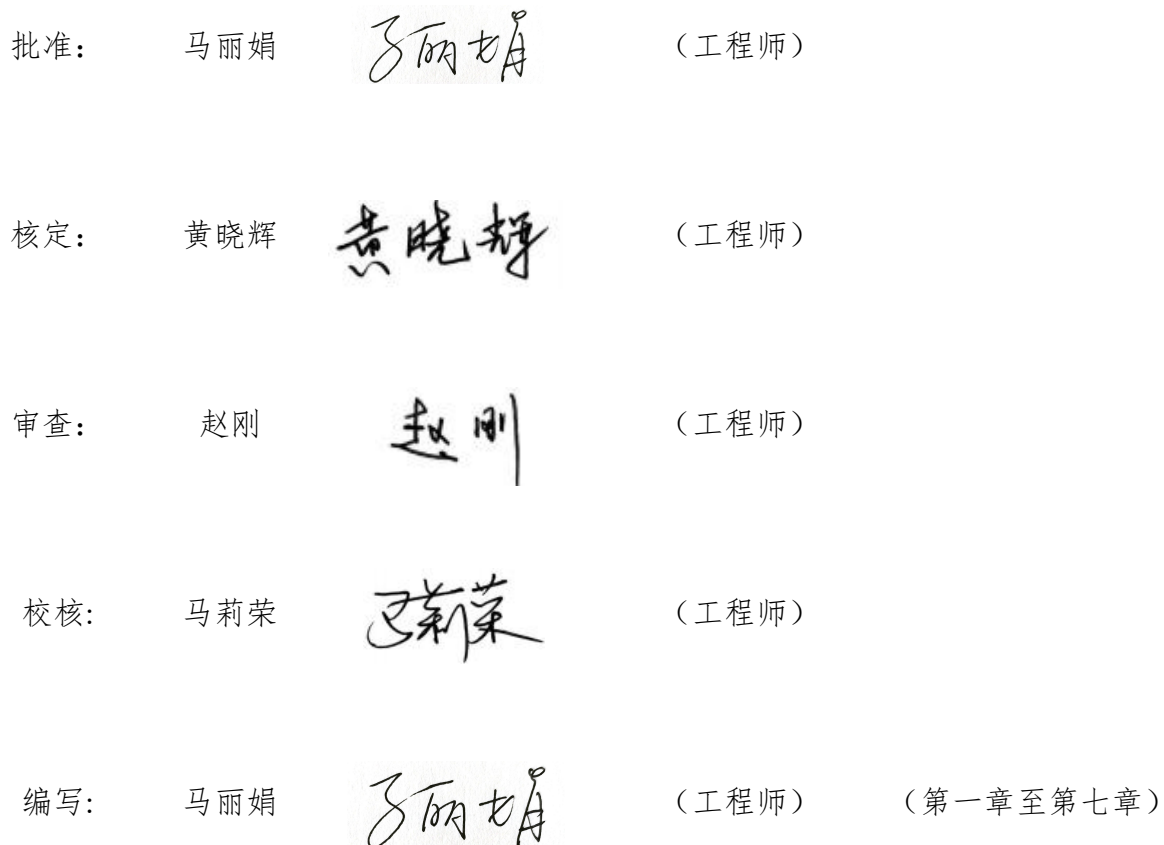 批准： 马丽娟 马丽娟 （工程师）
核定： 黄晓辉 黄晓辉 （工程师）
审查： 赵刚 赵刚 （工程师）
校核: 马莉荣 马莉荣 （工程师）
编写: 马丽娟 马丽娟 （工程师） （第一章至第七章）